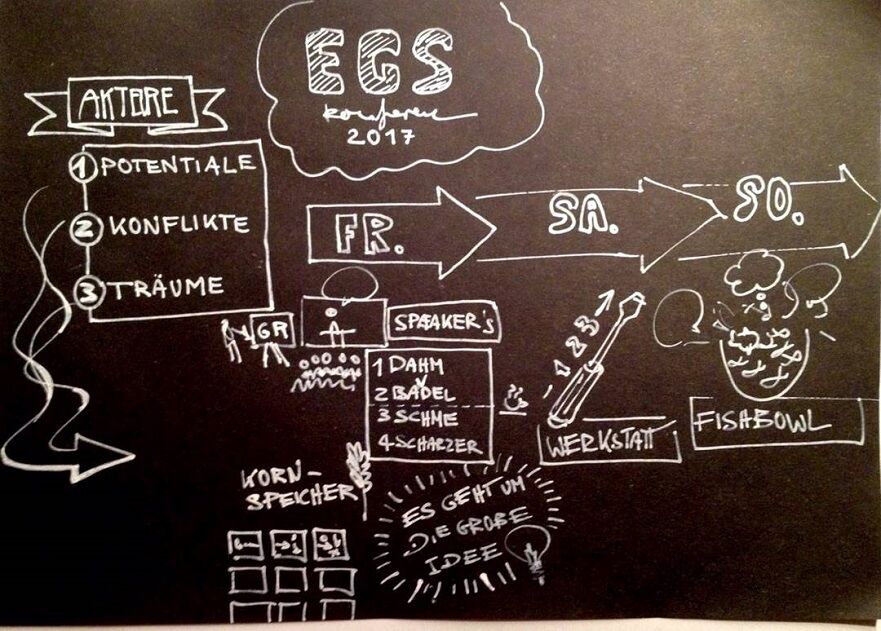 EGS
Konferenz
2017
AKTEURE
1 POTENTIALE
2 KONFLIKTE
3 TRÄUME
FR.
SA.
SO.
GR
SPEAKER'S
1 DAHM
2 BADEL
3 SCHME
4 SCHARZER
1 2 3
WERKSTATT
FISHBOWL
KORN-
SPEICHER
ES GEHT UM
DIE GROßE
IDEE